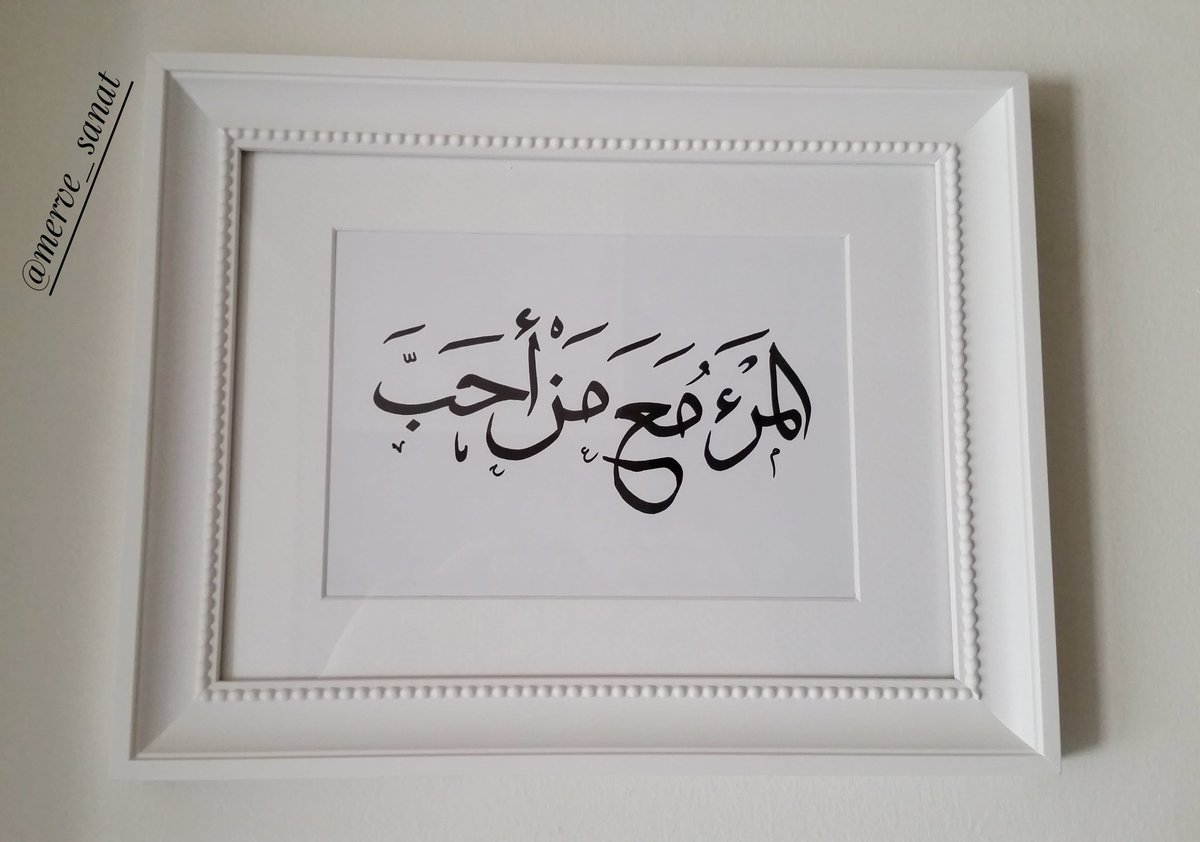 @merve_sanat
الْمَرْءُ مَعَ مَنْ أَحَبَّ